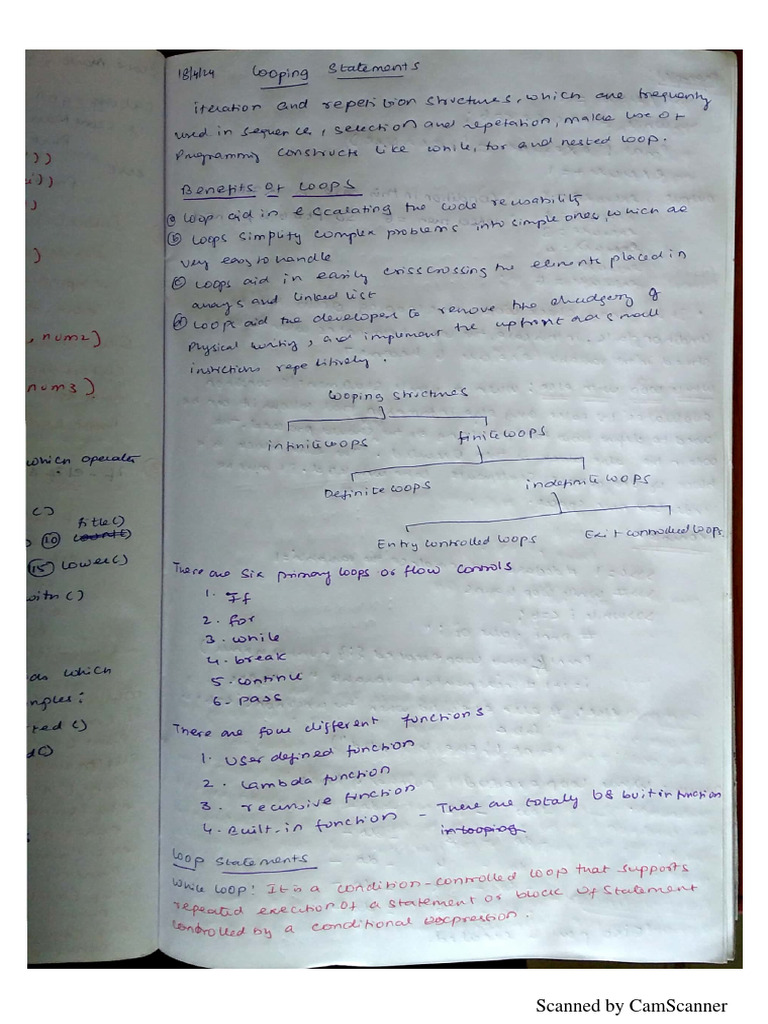 18/4/24 Looping Statements
iteration and repetition structures, which are frequently
used in sequences, selection and repetation, makes use of
Programming constructs like while, for and nested loop.
Benefits of Loops
(a) Loop aid in escalating the code reusability
(b) Loops simplify complex problems into simple ones, which are
very easy to handle
(c) Loops aid in easily crisscrossing the elements placed in
arrays and linked list
(d) Loops aid the developers to remove the drudgery of
physical writing, and implement the upfront and small
instrctions repetitively.
Looping Structures
infinite loops finite loops
Definite loops indefinite loops
Entry controlled loops Exit controlled loops
There are six primary loops or flow controls
1. If
2. for
3. while
4. break
5. continue
6. pass
There are four different functions
1. User defined function
2. Lambda function
3. recursive function
4. Built-in function - There are totally 68 built in function
in looping
Loop Statements
While loop: It is a condition-controlled loop that supports
repeated execution of a statement or block of statement
controlled by a conditional expression.
))
))
)
)
, num2)
num3)
which operator
()
title()
(10) count()
(15) lower()
with()
as which
mples:
ted()
d()
Scanned by CamScanner